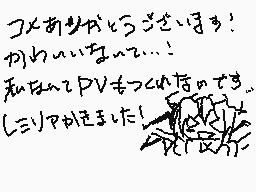 コメありがとうございます!
かわいいなんて…!
私なんてPVもつくれないのです…
レミリアかきました!